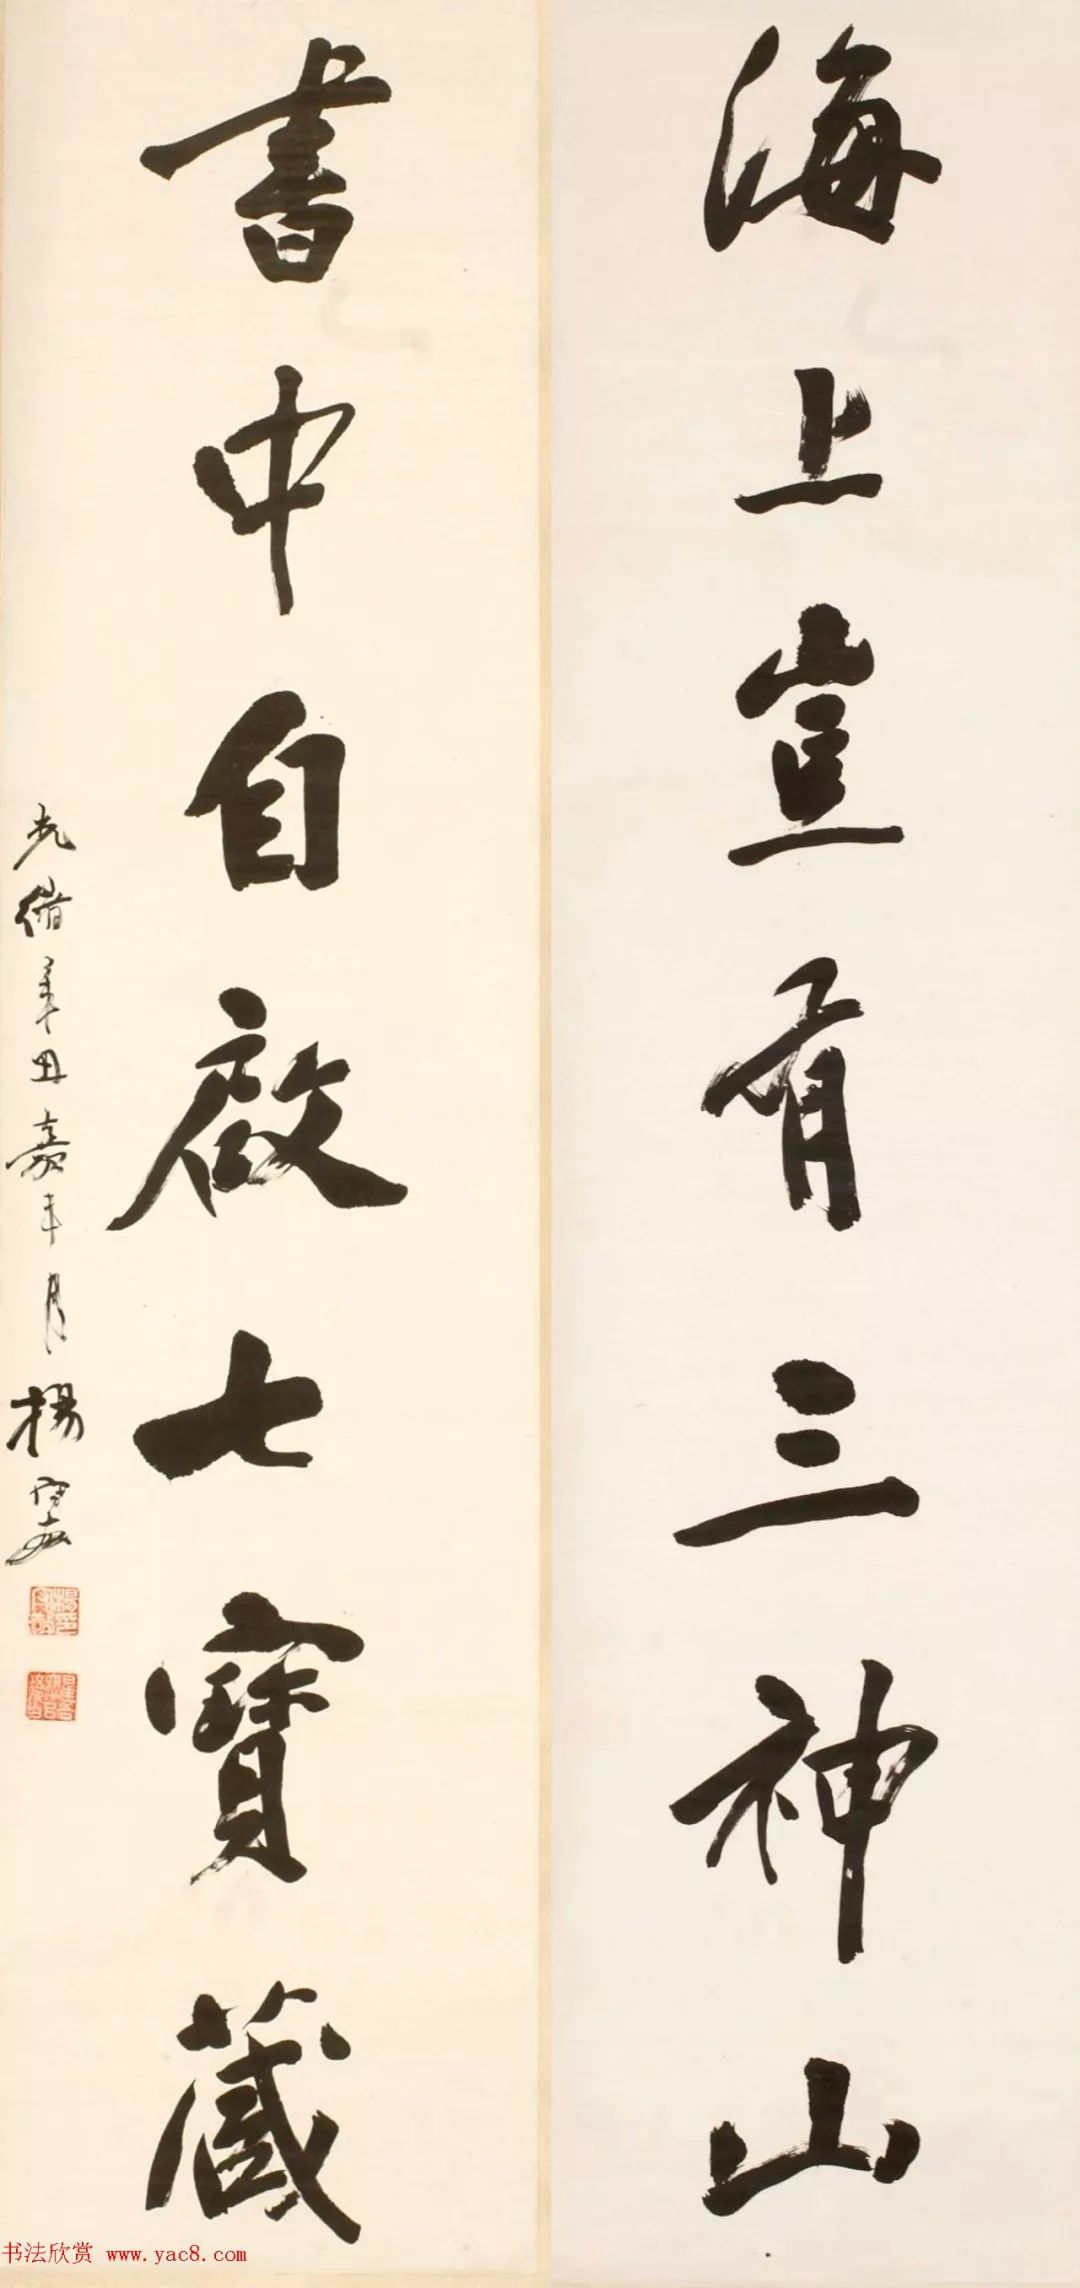 海上豈有三神山
書中自啟七寶藏
光緒辛丑嘉平月楊守敬
书法欣赏 www.yac8.com